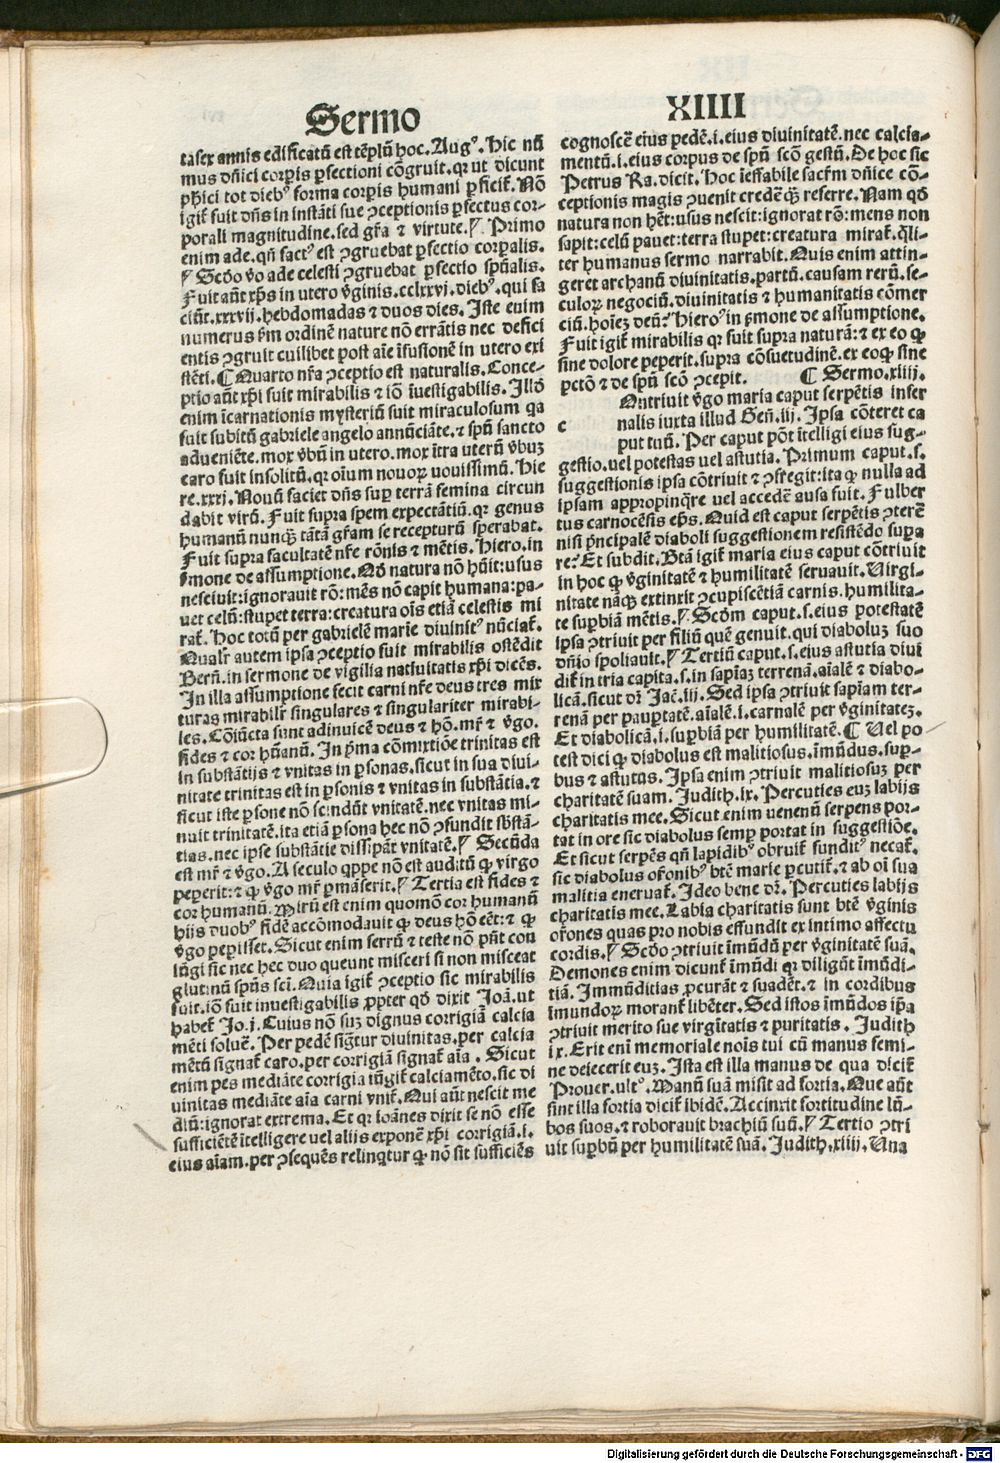 Sermo
XIIII
tasex annis edificatū est tēplū hoc. Augꝰ. Hic nū
mus dn̄ici corꝑis ꝑfectioni cōgruit. qꝛ ut dicunt
pḥici tot diebꝰ forma corꝑis humani ꝑficit᷑. Nō
igit᷑ fuit dn̄s in instāti sue ꝯceptionis ꝑfectus cor-
porali magnitudine. sed gr̄a ⁊ virtute. ¶ Primo
enim ade. qn̄ factꝰ est ꝯgruebat ꝑfectio corꝑalis.
¶ Scd̄o v̄o ade celesti ꝯgruebat ꝑfectio spūalis.
Fuit aūt xp̄s in utero v̄ginis. cclxxvi. diebꝰ. qui fa
ciūt. xxxvij. hebdomadas ⁊ duos dies. Iste enim
numerus ẜm ordinē nature nō errātis nec defici
entis ꝯgruit cuilibet post aīe īfusionē in utero exi
stēti. ¶ Quarto nr̄a ꝯceptio est naturalis. Conce-
ptio aūt xp̄i fuit mirabilis ⁊ iō īuestigabilis. Illd̄
enim īcarnationis mysteriū fuit miraculosum qa
fuit subitū gabriele angelo annūciāte. ⁊ spū sancto
adueniēte. mox v̄bū in utero. mox ītra uterū v̄buꝫ
caro fuit insolitū. qꝛ oīum nouoꝝ nouissimū. Hie
re. xxxi. Nouū faciet dn̄s suꝑ terrā femina circun
dabit virū. Fuit supra spem expectātiū. qꝛ genus
humanū nunqꝫ tātā gr̄am se recepturū sperabat.
Fuit supra facultatē nr̄e rōnis ⁊ mētis. Hiero. in
ẜmone de assumptione. Nō natura nō hūit: usus
nesciuit: ignorauit rō: mēs nō capit humana: pa-
uet celū: stupet terra: creatura oīs etiā celestis mi
rat᷑. Hoc totū per gabrielē marie diuinitꝰ nūciat᷑.
Qualr̄ autem ipsa ꝯceptio fuit mirabilis ostēdit
Bern̄. in sermone de vigilia natiuitatis xp̄i dicēs.
In illa assumptione fecit carni nr̄e deus tres mix
turas mirabilr̄ singulares ⁊ singulariter mirabi-
les. Cōiūcta sunt adinuicē deus ⁊ hō. mr̄ ⁊ v̄go.
fides ⁊ cor hūanū. In p̄ma cōmixtiōe trinitas est
in substātijs ⁊ vnitas in ꝑsonas. sicut in sua diui-
nitate trinitas est in ꝑsonis ⁊ vnitas in substātia. ⁊
sicut iste ꝑsone nō scindūt vnitatē. nec vnitas mi-
nuit trinitatē. ita etiā ꝑsona hec nō ꝯfundit sb̄stā-
tias. nec ipse substātie dissipāt vnitatē. ¶ Secūda
est mr̄ ⁊ v̄go. A seculo qp̄pe nō est auditū ꝙ virgo
peperit: ⁊ ꝙ v̄go mr̄ ꝑmāserit. ¶ Tertia est fides ⁊
cor humanū. Mirū est enim quomō cor humanū
hijs duobꝰ fidē accōmodauit ꝙ deus hō eēt: ⁊ ꝙ
v̄go peperisset. Sicut enim ferrū ⁊ teste nō pn̄t con
iūgi sic nec hec duo queunt misceri si non misceat
glutinū spūs sc̄i. Quia igit᷑ ꝯceptio sic mirabilis
fuit. iō fuit inuestigabilis ꝓpter qd̄ dixit Joā. ut
habet᷑ Jo. j. Cuius nō suꝫ dignus corrigiā calcia
mēti soluē. Per pedē sigt᷑ur diuinitas. per calcia
mētū signat᷑ caro. per corrigiā signat᷑ aīa. Sicut
enim pes mediāte corrigia iūgit᷑ calciamēto. sic di
uinitas mediāte aīa carni vnit᷑. Qui aūt nescit me
diū: ignorat extrema. Et qꝛ ioānes dixit se nō esse
sufficiētē ītelligere vel alijs exponē xp̄i corrigiā. i.
eius aīam. per ꝯsequēs relinqtur ꝙ nō sit sufficiēs
cognoscē eius pedē. i. eius diuinitatē. nec calcia-
mentū. i. eius corpus de spū scō gestū. De hoc sic
Petrus Ra. dicit. Hoc ieffabile sacr̄m dn̄ice cō-
ceptionis magis ꝯuenit credē qꝫ referre. Nam qd̄
natura non hēt: usus nescit: ignorat rō: mens non
sapit: celū pauet: terra stupet: creatura mirat᷑. qli-
ter humanus sermo narrabit. Quis enim attin-
geret archanū diuinitatis. partū. causam rerū. se-
culoꝝ negociū. diuinitatis ⁊ humanitatis cōmer
ciū. hoīeꝫ deū? Hieroꝰ in ẜmone de assumptione.
Fuit igit᷑ mirabilis qꝛ fuit supra naturā: ⁊ ex eo ꝙ
sine dolore peperit. supra cōsuetudinē. ex eoꝙ sine
pctō ⁊ de spū scō ꝯcepit. ¶ Sermo. xiiij.
Ontriuit v̄go maria caput serpētis infer
c nalis iuxta illud Gen̄. iij. Ipsa cōteret ca
put tuū. Per caput pōt ītelligi eius sug-
gestio. uel potestas uel astutia. Primum caput. s.
suggestionis ipsa cōtriuit ⁊ ꝯfregit: ita ꝙ nulla ad
ipsam appropinqre uel accedē ausa fuit. Fulber
tus carnocēsis ep̄s. Quid est caput serpētis ꝯterē
nisi p̄ncipalē diaboli suggestionem resistēdo suꝑa
re? Et subdit. Btā igit᷑ maria eius caput cōtriuit
in hoc ꝙ v̄ginitatē ⁊ humilitatē seruauit. Virgi-
nitate nāqꝫ extinxit ꝯcupiscētiā carnis. humilita-
te suꝑbiā mētis. ¶ Scd̄m caput. s. eius potestatē
ipsa ꝯtriuit per filiū quē genuit. qui diaboluꝫ suo
dn̄io spoliauit. ¶ Tertiū caput. s. eius astutia diui
dit᷑ in tria capita. s. in sapīaꝫ terrenā. aīalē ⁊ diabo-
licā. sicut dr̄ Jac̄. iij. Sed ipsa ꝯtriuit sapīam ter-
renā per pauꝑtatē. aīalē. i. carnalē per v̄ginitateꝫ.
Et diabolicā. i. suꝑbiā per humilitatē. ¶ Uel po
test dici ꝙ diabolus est malitiosus. īmūdus. suꝑ-
bus ⁊ astutus. Ipsa enim ꝯtriuit malitiosuꝫ per
charitatē suam. Judith. ix. Percuties euꝫ labijs
charitatis mee. Sicut enim uenenū serpens por-
tat in ore sic diabolus semꝑ portat in suggestiōe.
Et sicut serpēs qn̄ lapidibꝰ obruit᷑ funditꝰ necat᷑.
sic diabolus or̄onibꝰ btē marie ꝑcutit᷑. ⁊ ab oī sua
malitia eneruat᷑. Ideo bene dr̄. Percuties labijs
charitatis mee. Labia charitatis sunt btē v̄ginis
or̄ones quas pro nobis effundit ex intimo affectu
cordis. ¶ Scd̄o ꝯtriuit īmūdū per v̄ginitatē suā.
Demones enim dicunt᷑ īmūdi qꝛ diligūt īmūdi-
tiā. Immūditias ꝓcurāt ⁊ suadēt. ⁊ in cordibus
īmundoꝝ morant᷑ libēter. Sed istos īmūdos ip̄a
ꝯtriuit merito sue virgītatis ⁊ puritatis. Judith
ix. Erit enī memoriale noīs tui cū manus femi-
ne deiecerit euꝫ. Ista est illa manus de qua dicit᷑
Prouer. ultꝰ. Manū suā misit ad fortia. Que aūt
sint illa fortia dicit᷑ ibidē. Accinxit fortitudine lū-
bos suos. ⁊ roborauit brachiū suū. ¶ Tertio ꝯtri
uit suꝑbū per humilitatē suā. Judith. xiiij. Una
Digitalisierung gefördert durch die Deutsche Forschungsgemeinschaft - DFG